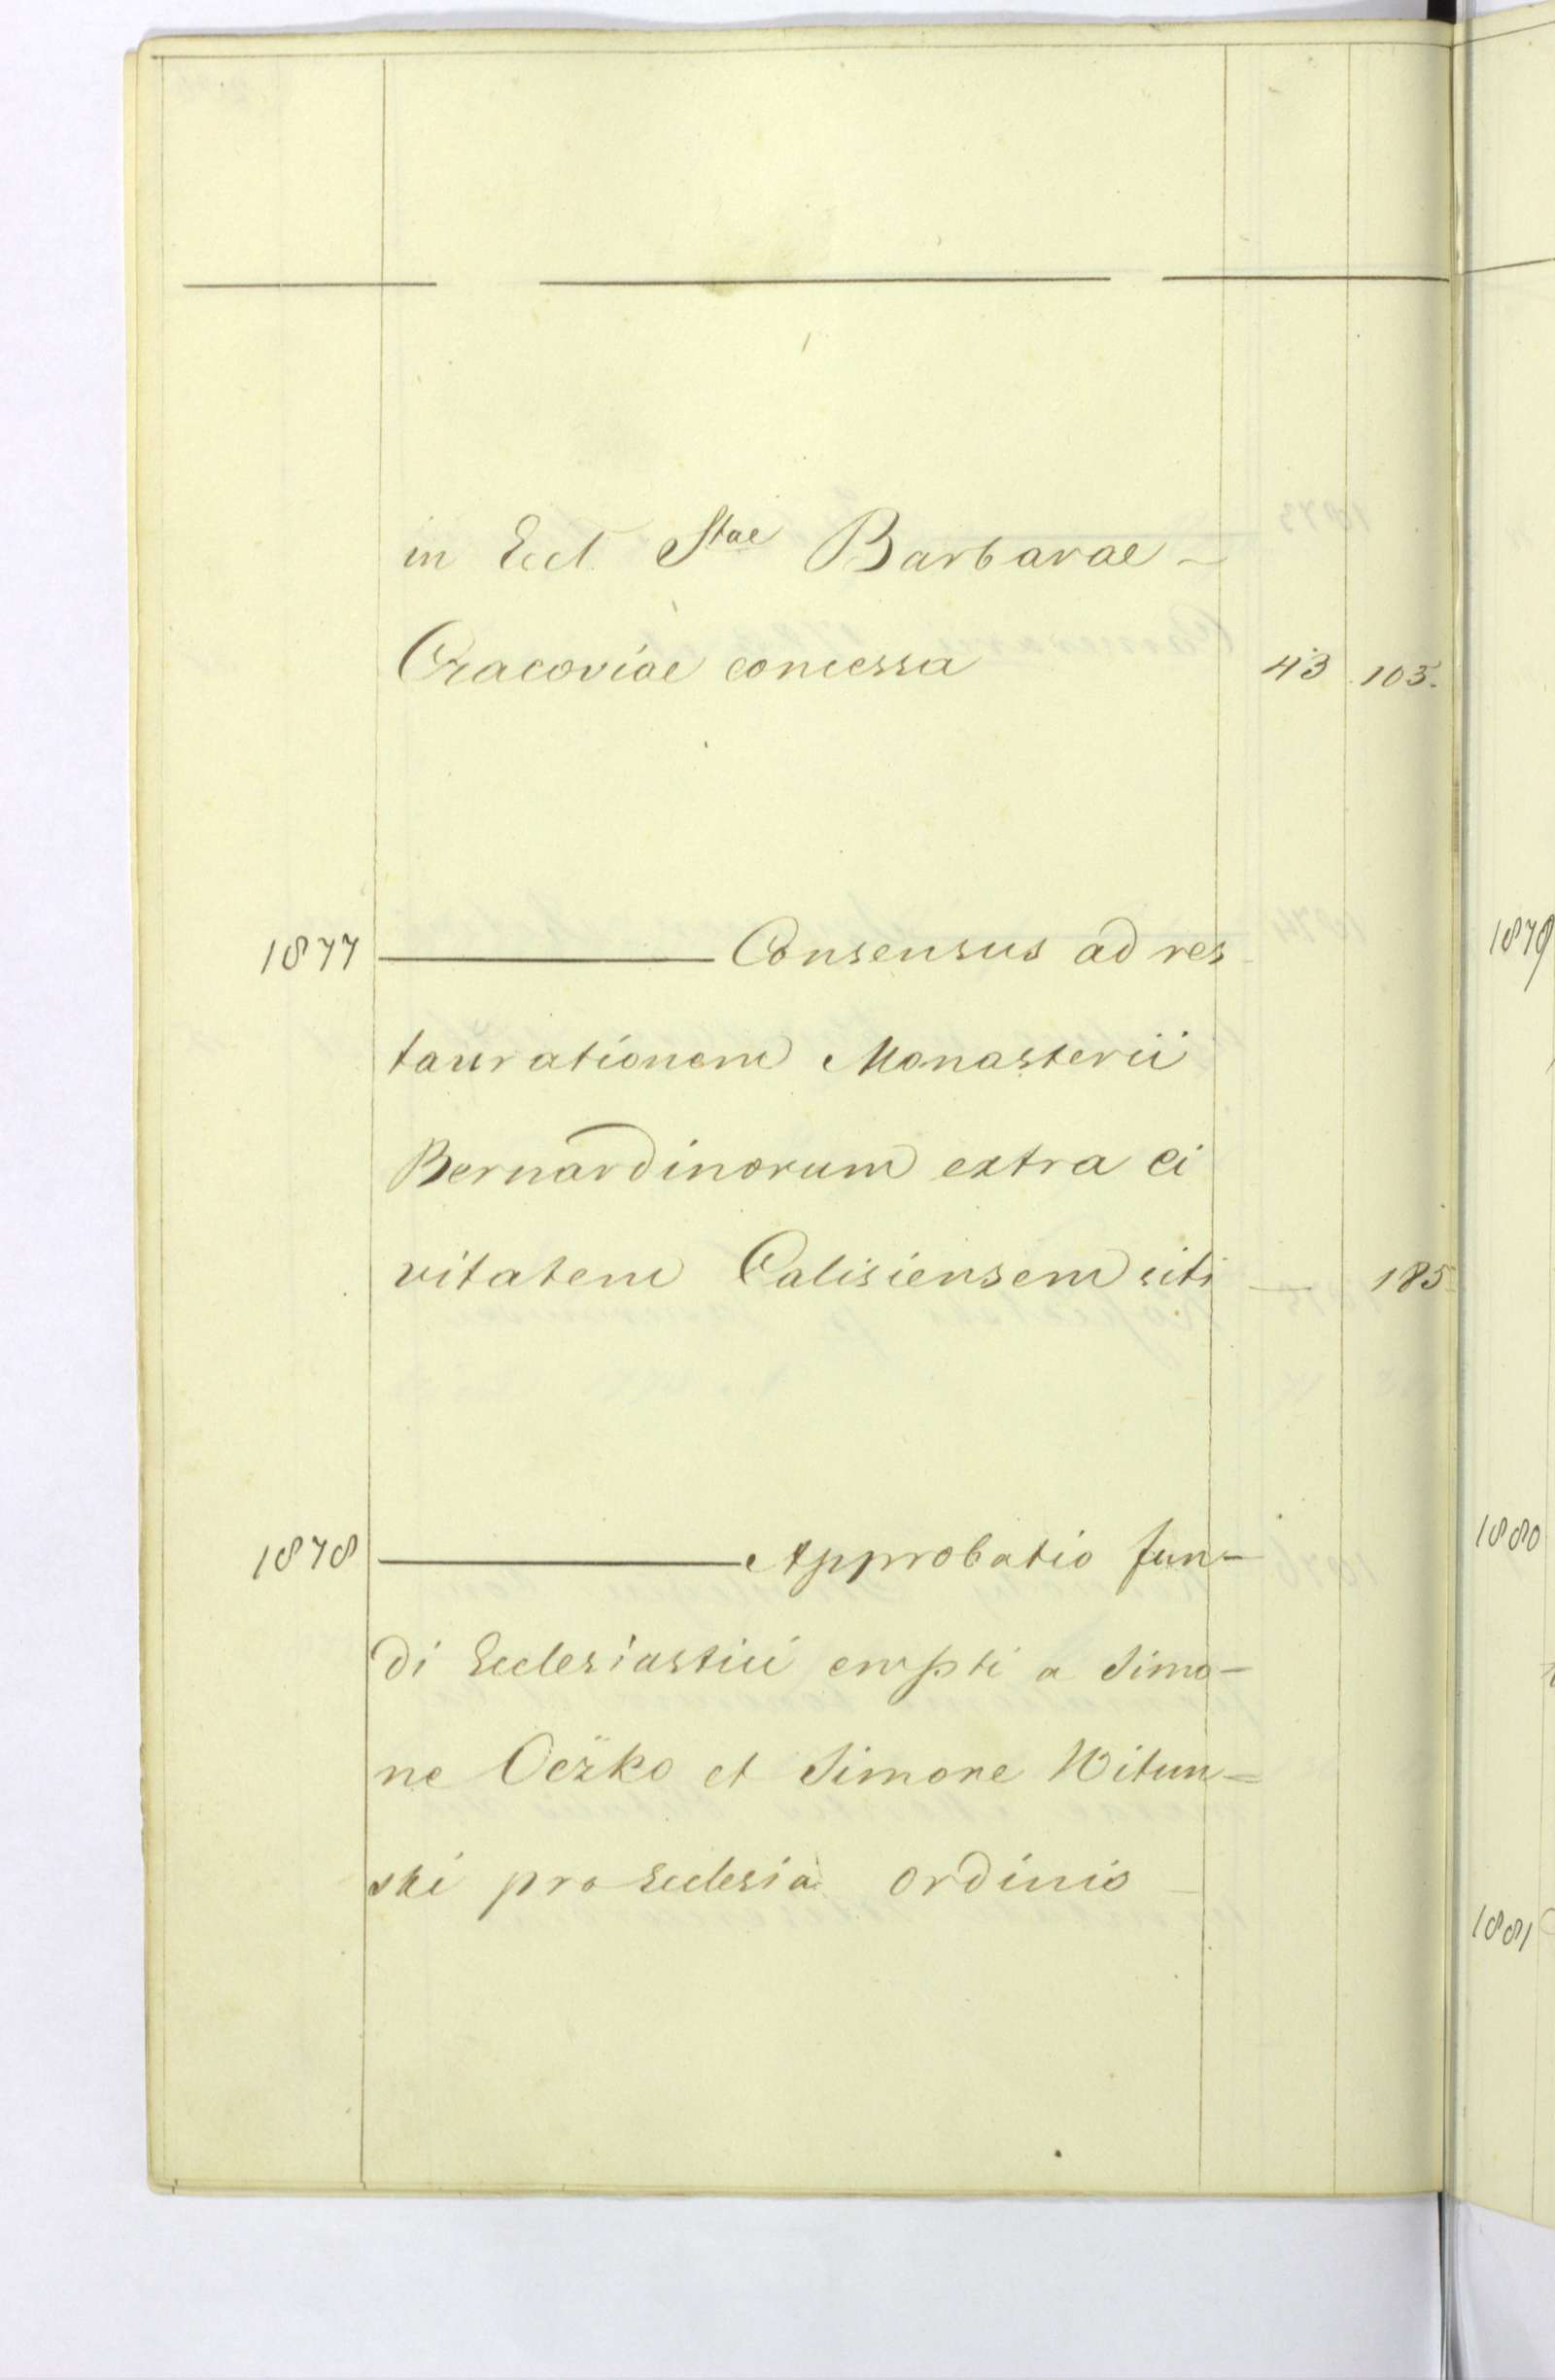 in Eccl. Stae Barbarae -
Cracoviae concessa 43 103.
1877 ——— Consensus ad res
taurationem Monasterii
Bernardinorum extra ci
vitatem Calisiensem siti — 185
1878 ——— Approbatio fun-
di Ecclesiastici empti a Simo-
ne Oczko et Simone Witun=
ski pro Ecclesia Ordinis -
1879
1880
1881